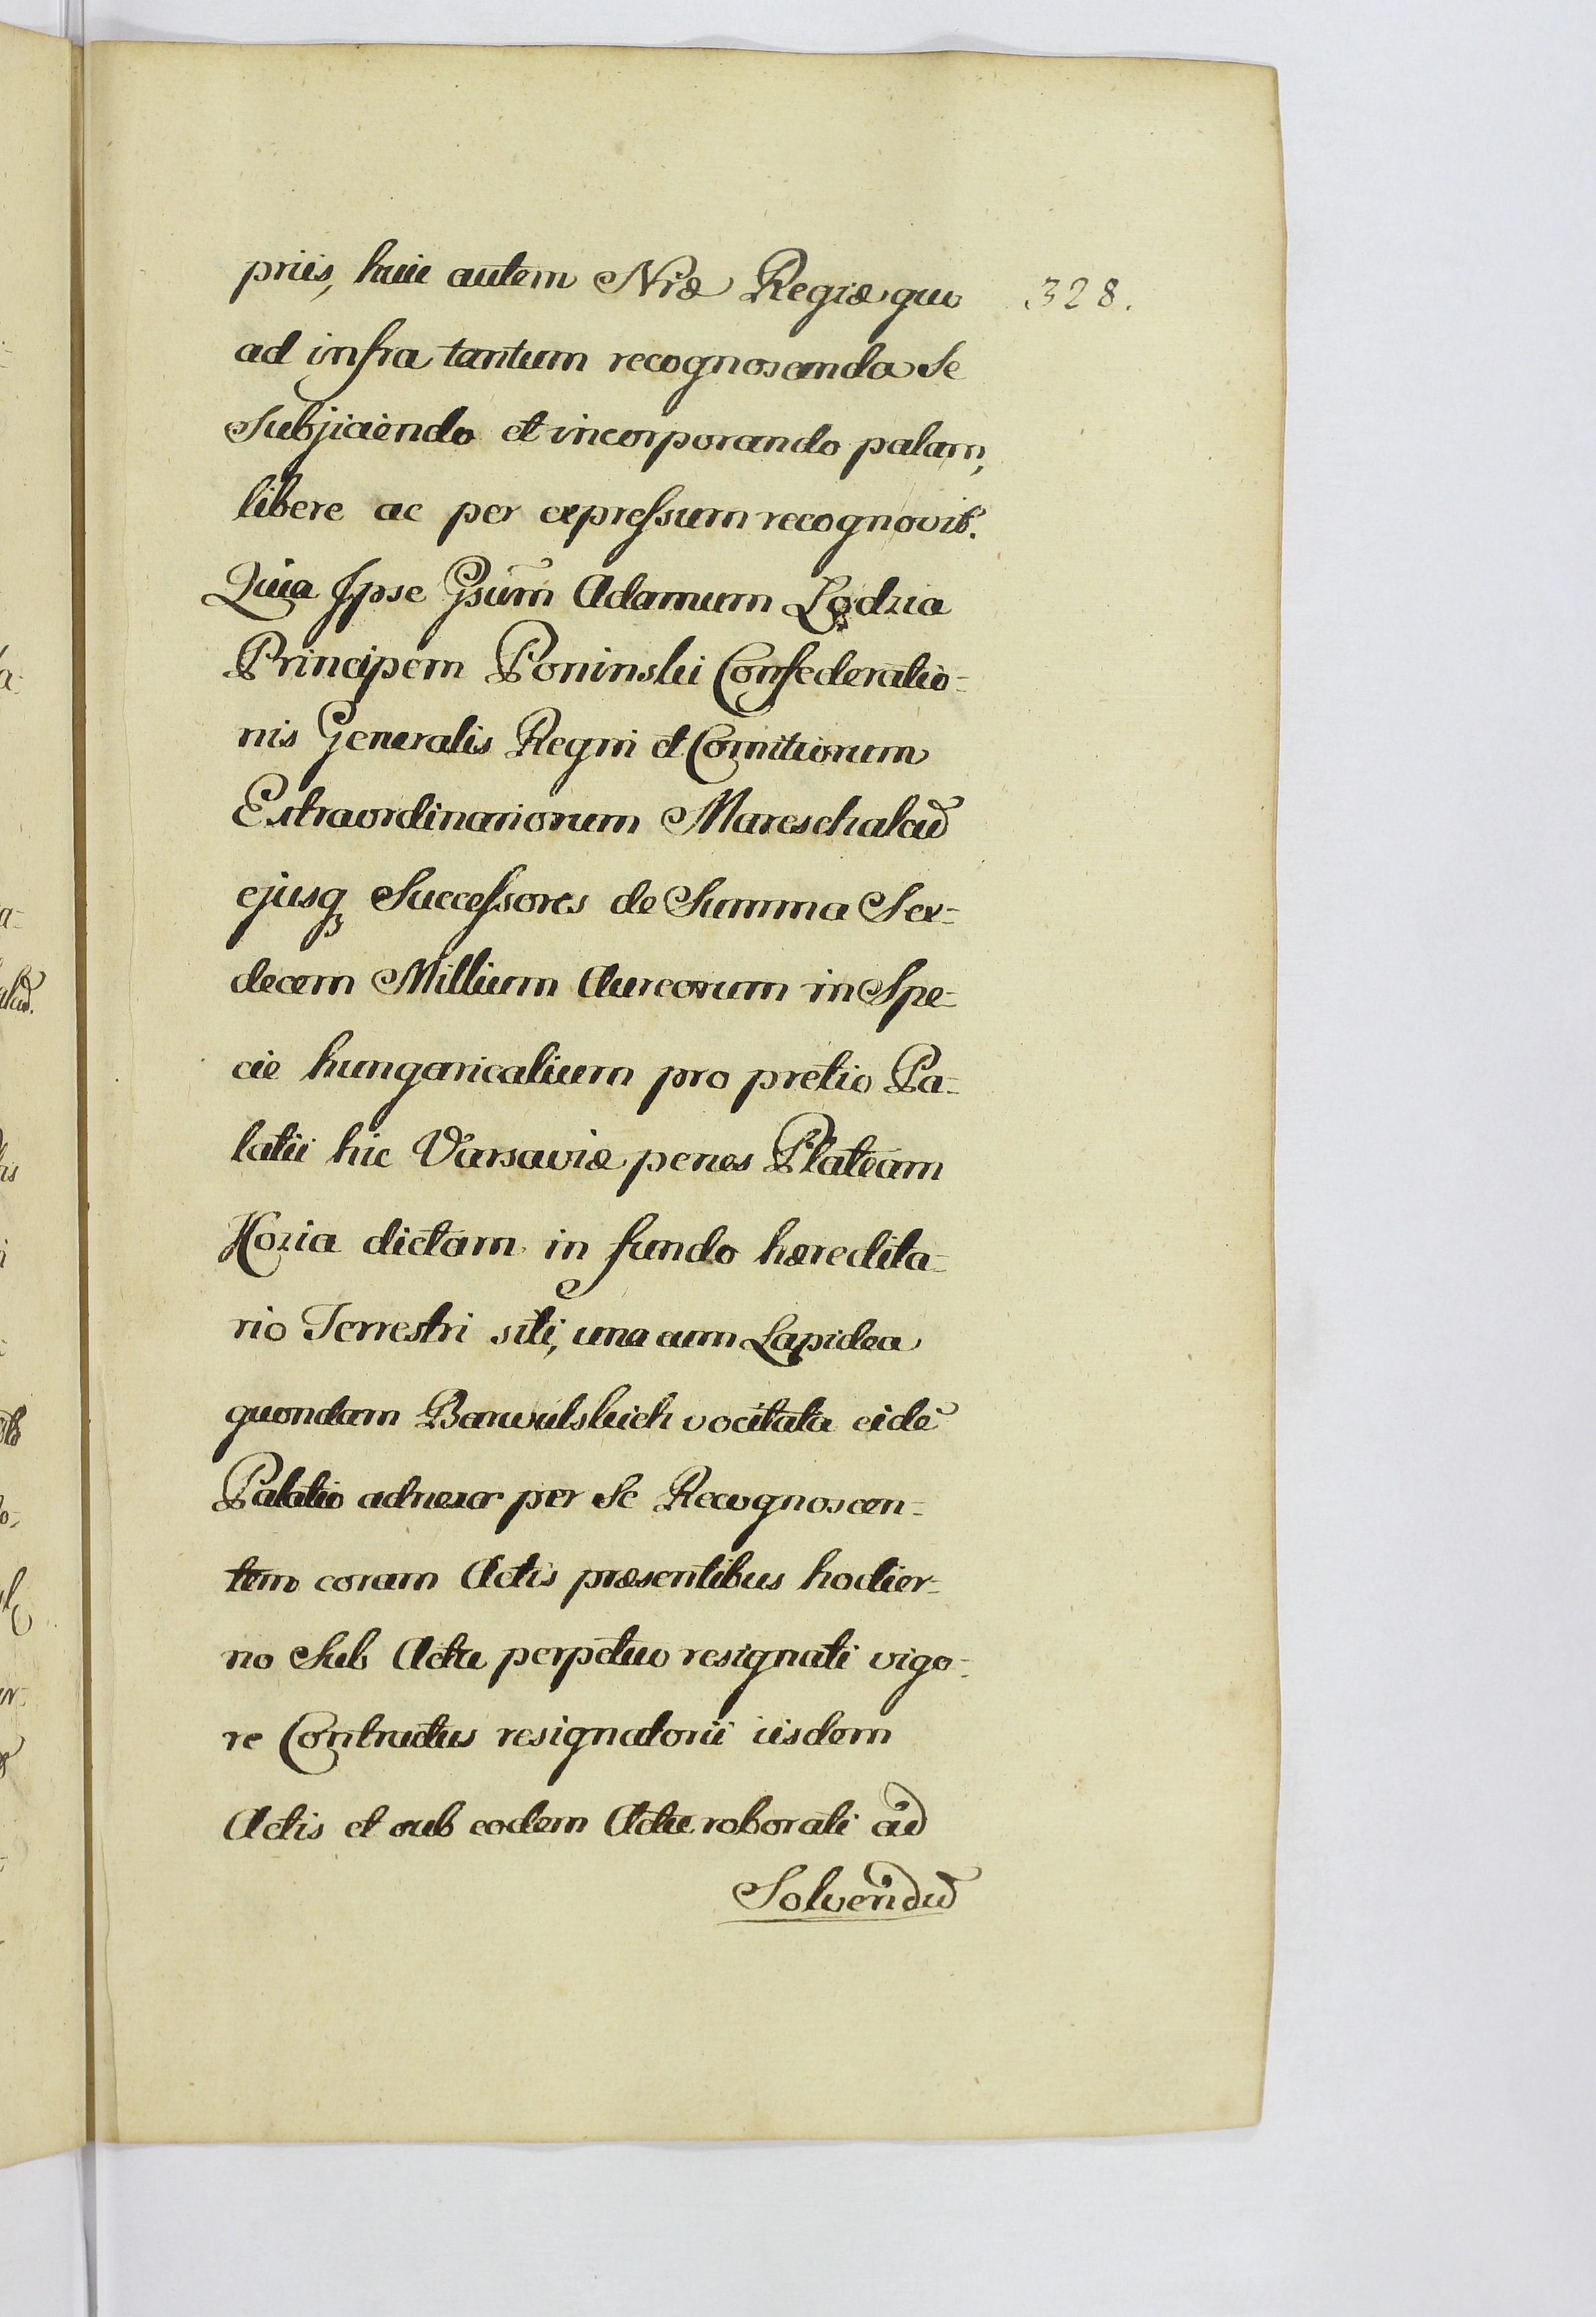 priis, huic autem Nræ Regiæ quo 328.
ad infra tantum recognoscenda Se
Subjiciendo et incorporando palam,
libere ac per expressum recognovit.
Quia Ipse Gsum Adamum Lodzia
Principem Poninski Confederatio=
nis Generalis Regni et Comitiorum
Extraordinariorum Mareschalcũ
ejusq Successores de Summa Sex=
decem Millium Aureorum in Spe=
cie hungaricalium pro pretio Pa=
latii hic Varsaviæ penes Plateam
Kozia dictam in fundo hæredita=
rio Terrestri siti, una cum Lapidea
quondam Barwulskich vocitata eidẽ
Palatio adnexa per Se Recognoscen=
tem coram Actis præsentibus hodier=
no Sub Actu perpetuo resignati vigo=
re Contractus resignatorii iisdem
Actis et sub eodem Actu roborati ad
Solvendũ